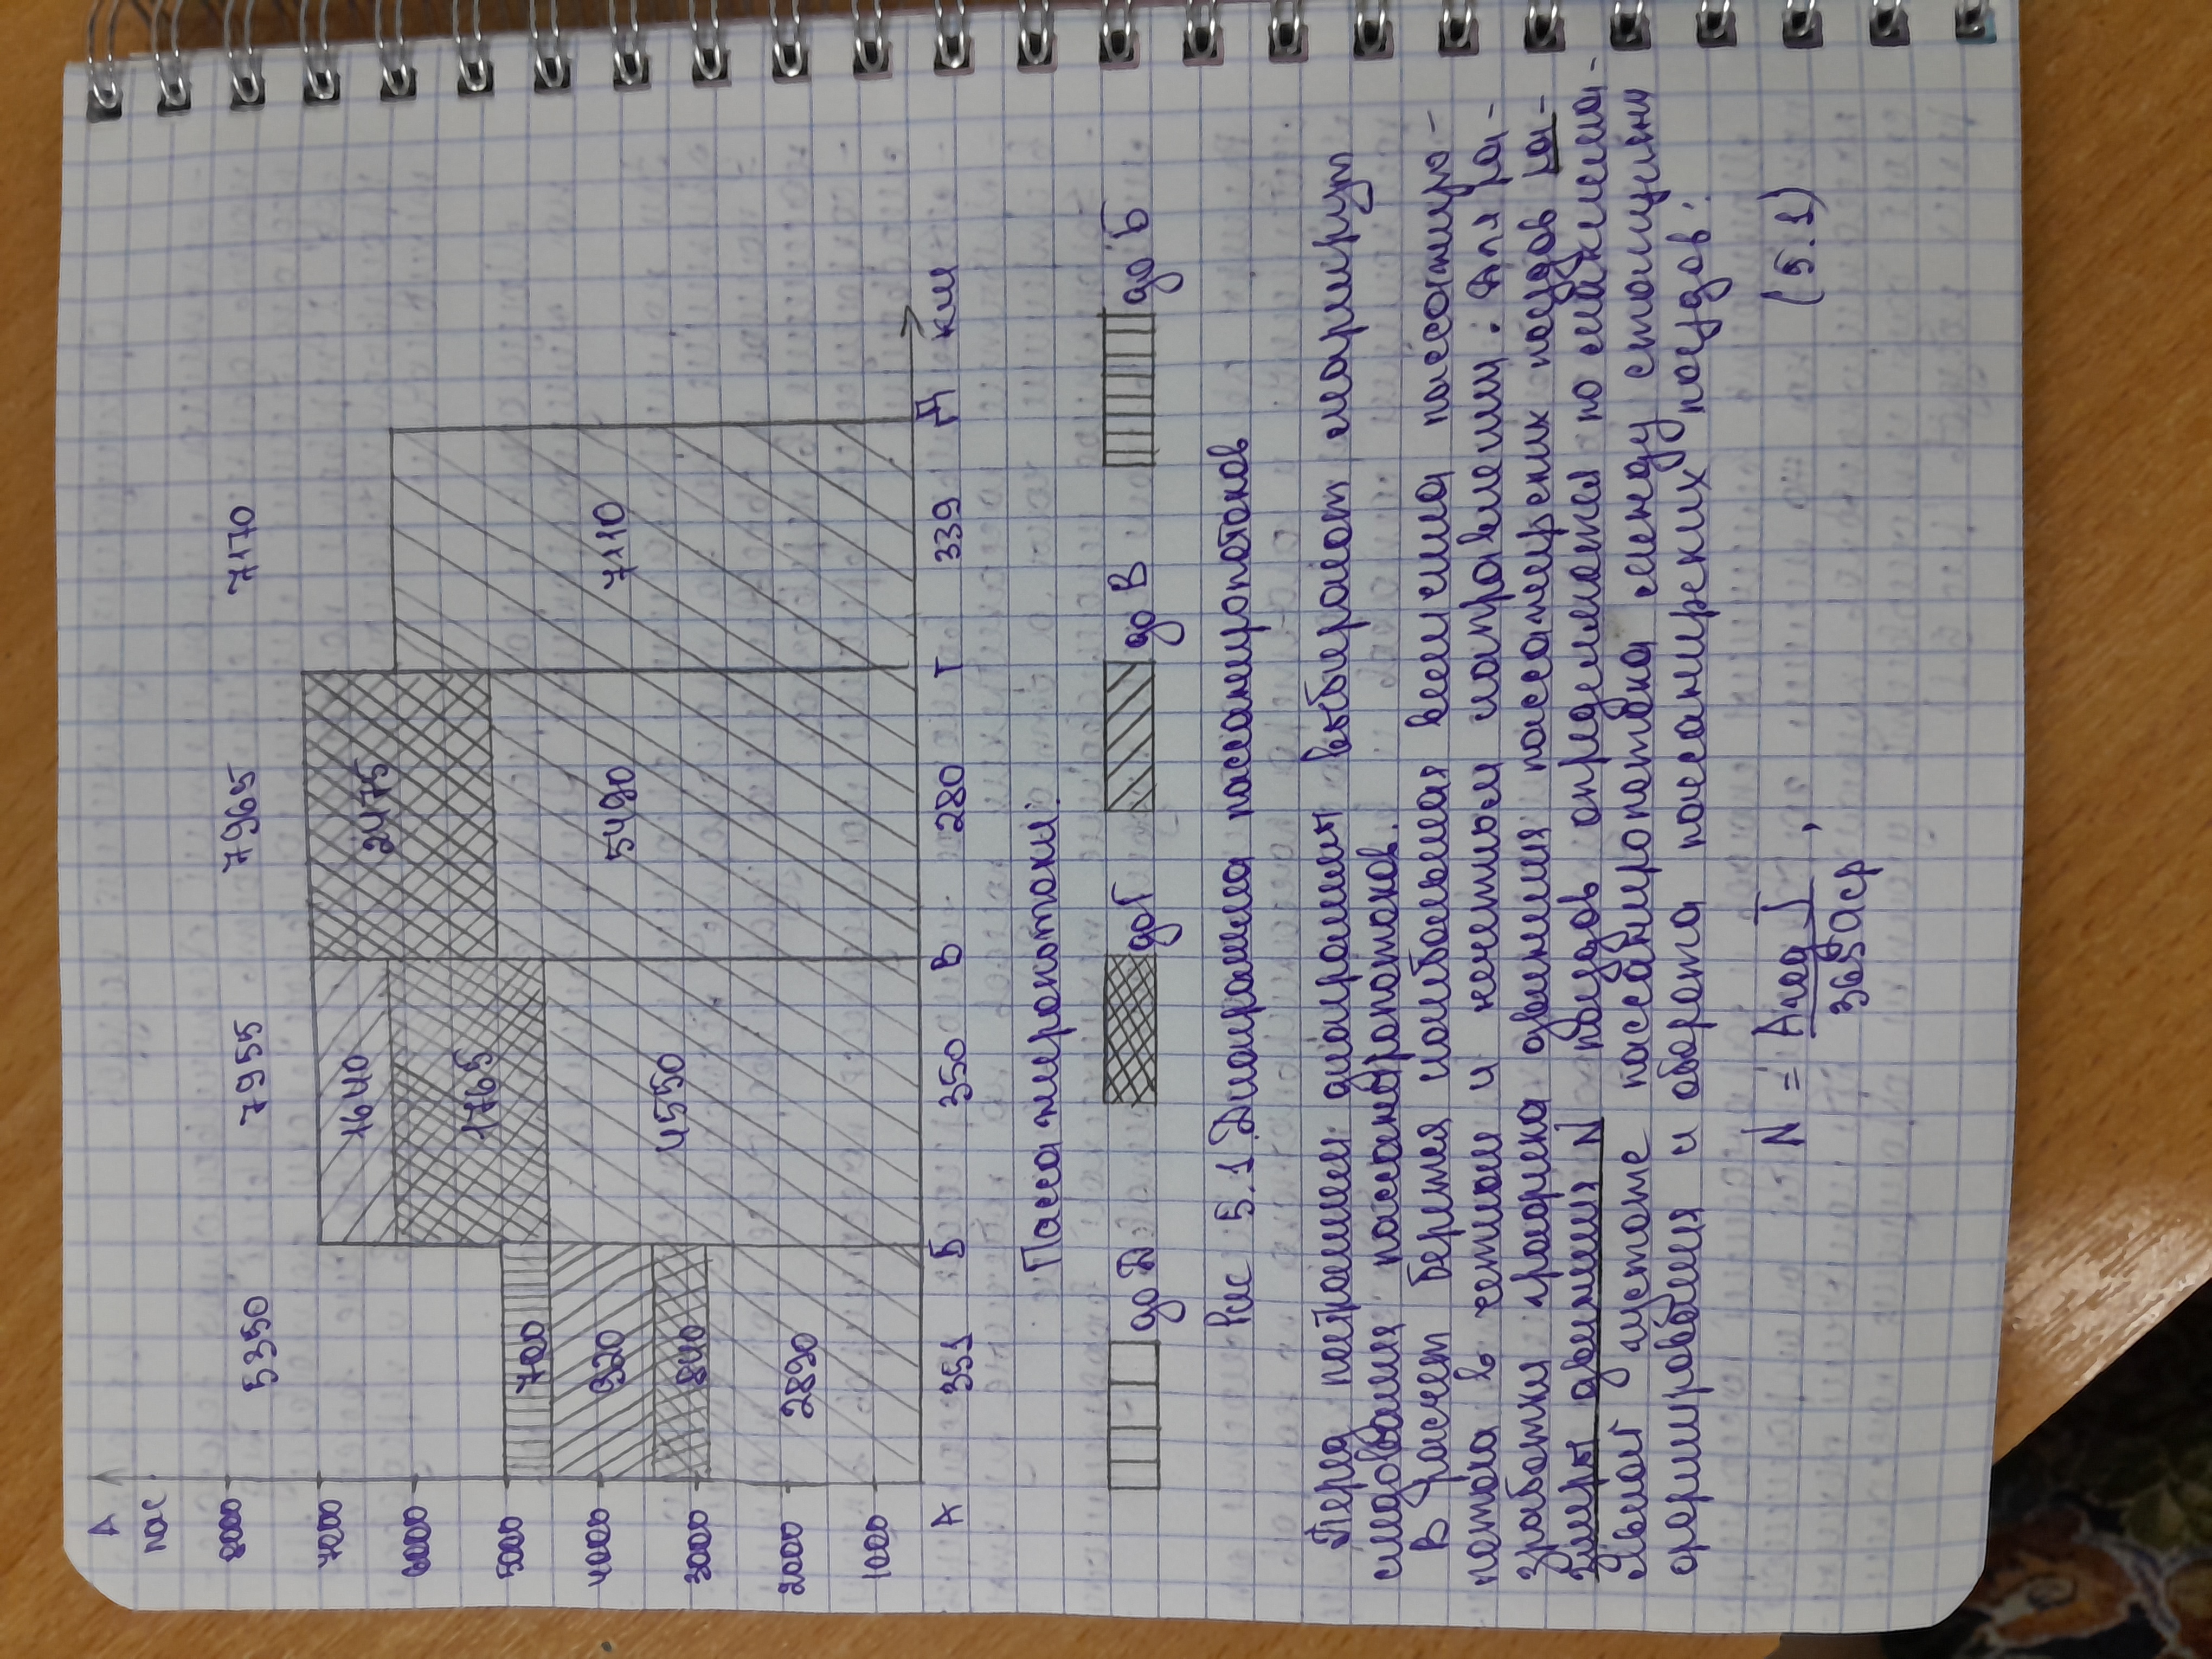 А
пас.
5350 7955 7965 7170
8000
7000
6000
5000
4000
3000
2000
1000
700
920
840
2890
1640
1765
4550
2475
5490
7110
А 351 Б 350 В 280 Г 339 Д км
Пассажиропотоки:
до Д до Г до В до Б
Рис 5.1 Диаграмма пассажиропотоков
построения диаграммы выбирают
следования пассажиропотоков.
В расчет берется наибольшая величина пассажиро-
потока в четном и нечетном направлении. Для ра-
зработки графика движения пассажирских поездов ра-
змеры движения N поездов определяются по
густоте пассажиропотока между станциями
формирования и оборота пассажирских поездов:
N = Aгод J / 365 aср , (5.1)